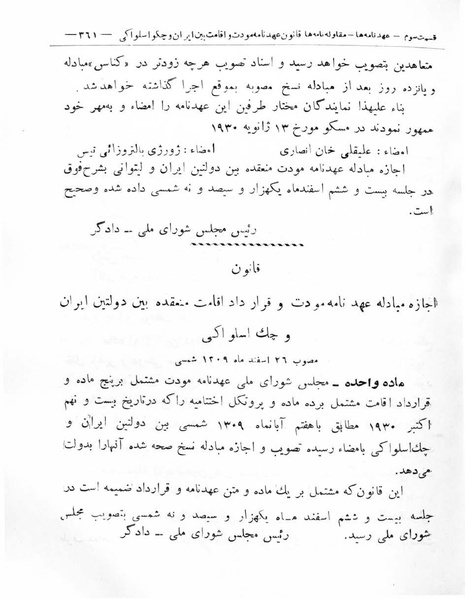 قسمت سوم – عهدنامه‌ها – مقاوله‌نامه‌ها قانون عهدنامه مودت و اقامت بین ایران و چکو اسلواکی – ۳۶۱ –
متعاهدین بتصویب خواهد رسید و اسناد تصویب هرچه زودتر در «کناس» مبادله
و پانزده روز بعد از مبادله نسخ مصوبه بموقع اجرا گذاشته خواهد شد
بناء علیهذا نمایندگان مختار طرفین این عهدنامه را امضاء و بمهر خود
ممهور نمودند در مسکو مورخ ۱۳ ژانویه ۱۹۳۰
امضاء : علیقلی خان انصاری امضاء : ژورژی بالتروزائی تیس
اجازه مبادله عهدنامه مودت منعقده بین دولتین ایران و لیتوانی بشرح فوق
در جلسه بیست و ششم اسفندماه یکهزار و سیصد و نه شمسی داده شده و صحیح
است.
رئیس مجلس شورای ملی – دادگر
قانون
اجازه مبادله عهد نامه مودت و قرار داد اقامت منعقده بین دولتین ایران
و چك اسلواکی
مصوب ۲۶ اسفند ماه ۱۳۰۹ شمسی
ماده واحده – مجلس شورای ملی عهدنامه مودت مشتمل بر پنج ماده و
قرارداد اقامت مشتمل بر ده ماده و پروتکل اختتامیه را که در تاریخ بیست و نهم
اکتبر ۱۹۳۰ مطابق با هفتم آبانماه ۱۳۰۹ شمسی بین دولتین ایران و
چك اسلواکی بامضاء رسیده تصویب و اجازه مبادله نسخ صحه شده آنها را بدولت
می‌دهد.
این قانون که مشتمل بر یك ماده و متن عهدنامه و قرارداد ضمیمه است در
جلسه بیست و ششم اسفند ماه یکهزار و سیصد و نه شمسی بتصویب مجلس
شورای ملی رسید. رئیس مجلس شورای ملی – دادگر